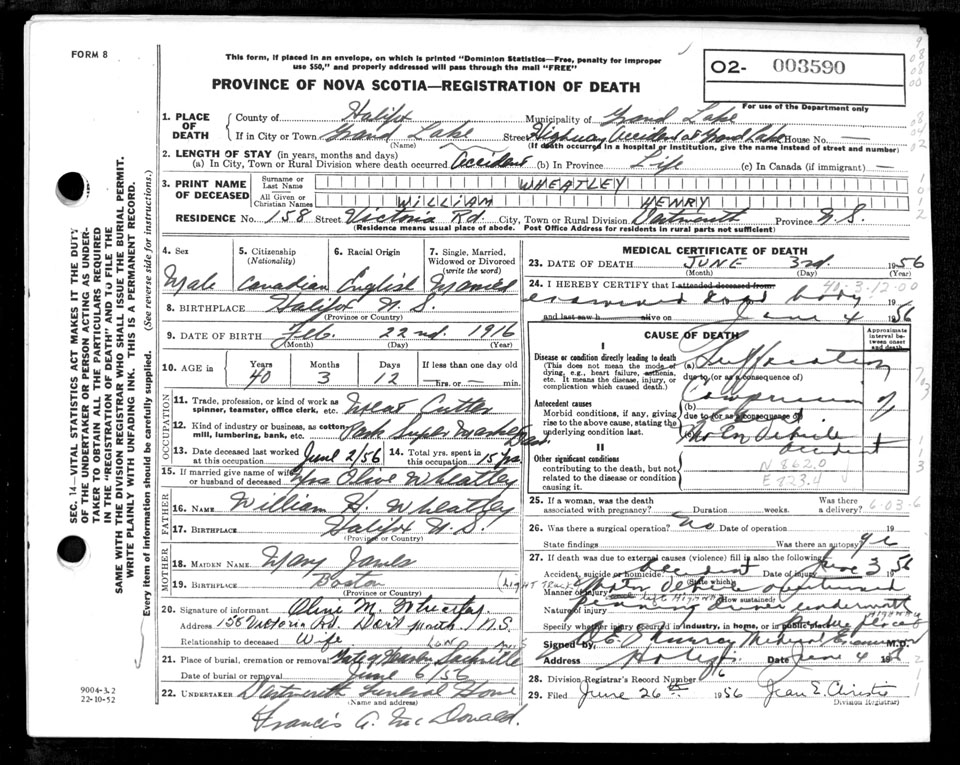 FORM 8
This form, if placed in an envelope, on which is printed "Dominion Statistics—Free, penalty for improper
use $50," and properly addressed will pass through the mail "FREE"
PROVINCE OF NOVA SCOTIA—REGISTRATION OF DEATH
O2- 003590
For use of the Department only
1. PLACE OF DEATH
County of Halifax Municipality of Grand Lake
If in City or Town Grand Lake Street Highway Accident at Grand Lake House No. —
(Name) (If death occurred in a hospital or institution, give the name instead of street and number)
2. LENGTH OF STAY (in years, months and days)
(a) In City, Town or Rural Division where death occurred Accident (b) In Province Life (c) In Canada (if immigrant) —
3. PRINT NAME OF DECEASED
Surname or Last Name WHEATLEY
All Given or Christian Names WILLIAM HENRY
RESIDENCE No. 158 Street Victoria Rd City, Town or Rural Division Dartmouth Province N.S.
(Residence means usual place of abode. Post Office Address for residents in rural parts not sufficient)
4. Sex
Male
5. Citizenship (Nationality)
Canadian
6. Racial Origin
English
7. Single, Married, Widowed or Divorced (write the word)
Married
8. BIRTHPLACE Halifax N.S.
(Province or Country)
9. DATE OF BIRTH Feb. 22nd. 1916
(Month) (Day) (Year)
10. AGE in Years 40 Months 3 Days 12 If less than one day old
hrs. or — min.
OCCUPATION
11. Trade, profession, or kind of work as
spinner, teamster, office clerk, etc. Meat Cutter
12. Kind of industry or business, as cotton-
mill, lumbering, bank, etc. Super Market
13. Date deceased last worked at this occupation June 2/56
14. Total yrs. spent in this occupation 15 yrs
15. If married give name of wife
or husband of deceased Mrs Olive Wheatley
FATHER
16. NAME William H. Wheatley
17. BIRTHPLACE Halifax N.S.
(Province or Country)
MOTHER
18. MAIDEN NAME Mary
19. BIRTHPLACE Boston
(Province or Country)
20. Signature of informant Olive M. Wheatley
Address 158 Victoria Rd. Dartmouth N.S.
Relationship to deceased Wife
21. Place of burial, cremation or removal Sackville
Date of burial or removal June 6/56
22. UNDERTAKER Dartmouth Funeral Home
(Name and address)
Francis G. McDonald.
MEDICAL CERTIFICATE OF DEATH
23. DATE OF DEATH JUNE 3rd. 1956
(Month) (Day) (Year)
24. I HEREBY CERTIFY that I attended deceased from: 40-3-12-00
examined dead body 19
and last saw h alive on June 4 1956
CAUSE OF DEATH
Approximate interval between onset and death
I
Disease or condition directly leading to death
(This does not mean the mode of
dying, e.g., heart failure, asthenia,
etc. It means the disease, injury, or
complication which caused death.)
(a) Suffocation
due to (or as a consequence of)
Antecedent causes
Morbid conditions, if any, giving
rise to the above cause, stating the
underlying condition last.
(b) Compression of
due to (or as a consequence of)
accident
II
Other significant conditions
contributing to the death, but not
related to the disease or condition
causing it.
N 862.0
E 823.4
25. If a woman, was the death
associated with pregnancy? Duration weeks. Was there a delivery? 6-03-6
26. Was there a surgical operation? No Date of operation 19
State findings Was there an autopsy?
27. If death was due to external causes (violence) fill in also the following:
Accident, suicide or homicide. Accident Date of injury June 3 1956
(State which)
Manner of injury
(How sustained)
Nature of injury pinning driver underneath
Specify whether injury occurred in industry, in home, or in public place
Signed by Murray Medical Examiner M.D.
Address Halifax Date June 4 19
28. Division Registrar's Record Number
29. Filed June 26th 1956 Jean E. Christie
Division Registrar)
SEC. 14—VITAL STATISTICS ACT MAKES IT THE DUTY
OF THE UNDERTAKER OR PERSON ACTING AS UNDER-
TAKER TO OBTAIN ALL THE PARTICULARS REQUIRED
IN THE "REGISTRATION OF DEATH" AND TO FILE THE
SAME WITH THE DIVISION REGISTRAR WHO SHALL ISSUE THE BURIAL PERMIT.
WRITE PLAINLY WITH UNFADING INK. THIS IS A PERMANENT RECORD.
Every item of information should be carefully supplied. (See reverse side for instructions.)
9004-3.2
22-10-52